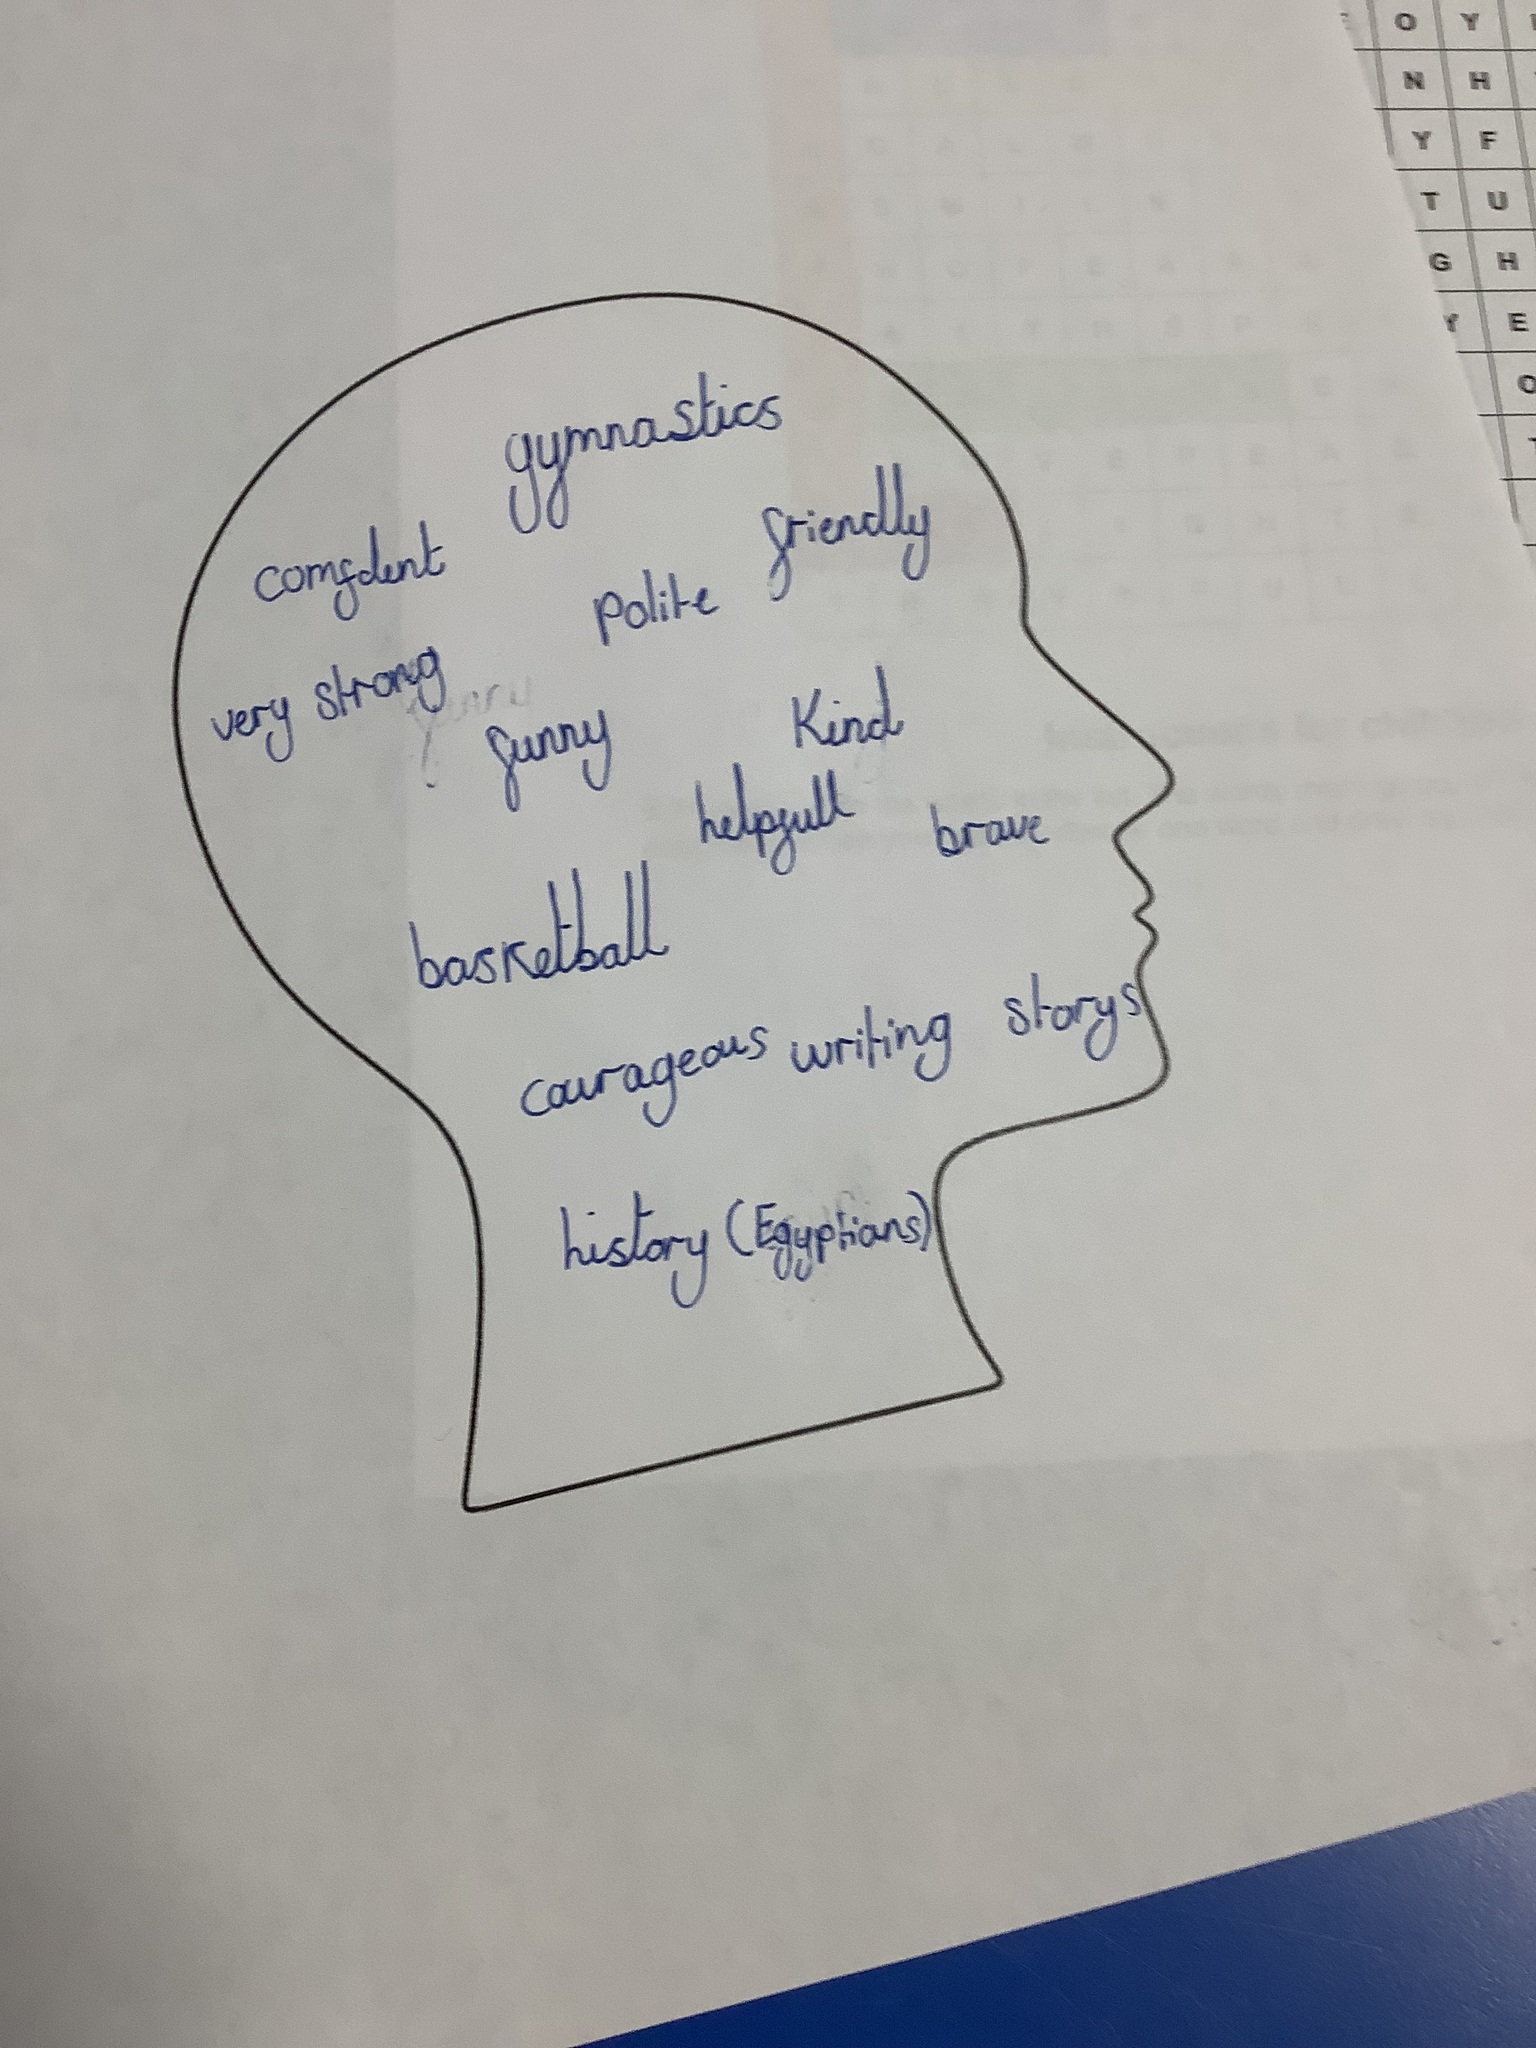 O Y
N H
Y F
T U
G H
Y E
O
gymnastics
friendly
comfdent
polite
very strong
funny
Kind
helpfull
brave
basketball
courageous writing storys
history (Egyptians)